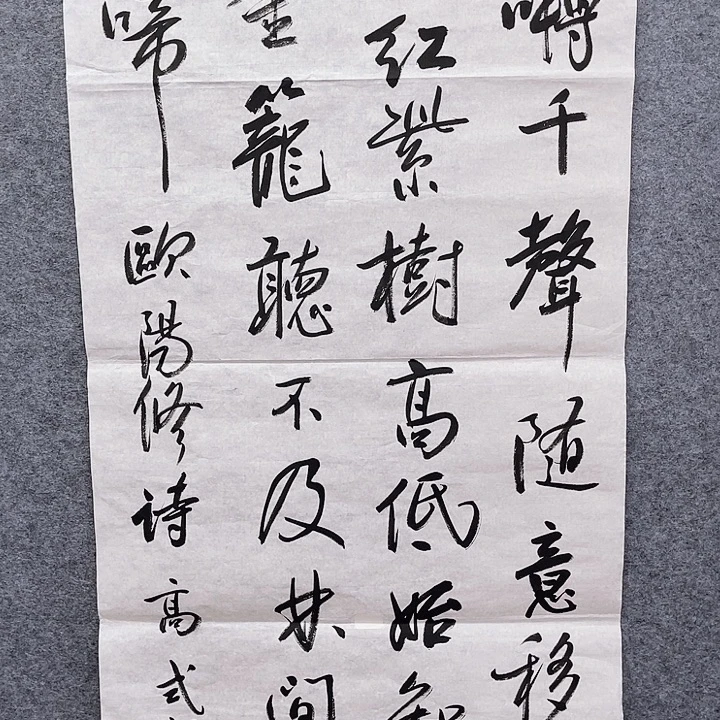 囀千聲随意移
紅紫樹高低始知
金籠聽不及林間
啼歐陽修詩高式